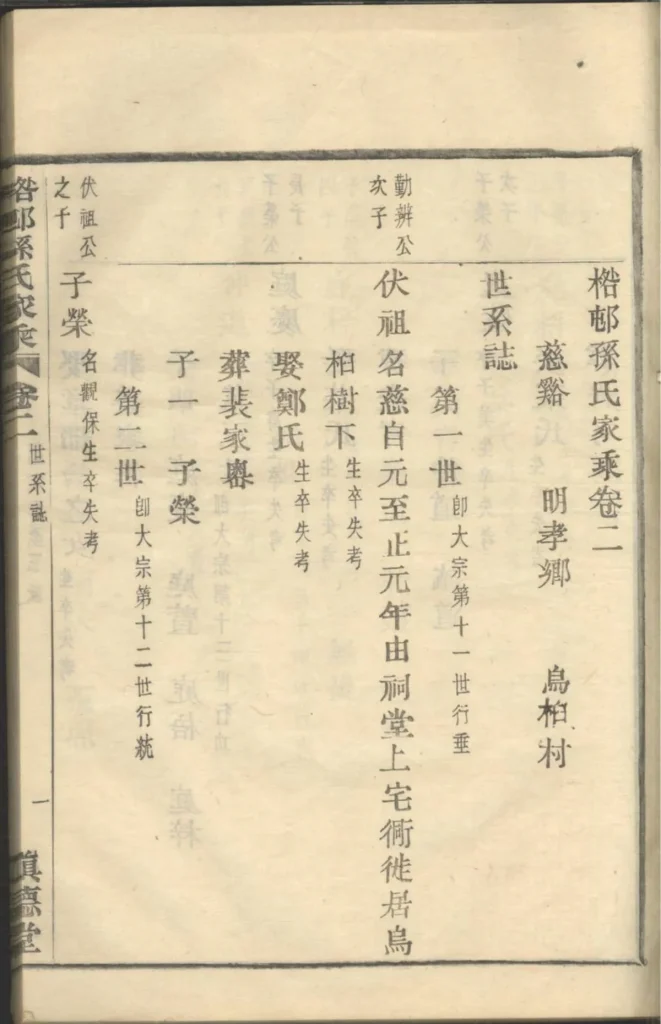 桕邨孫氏家乘卷二
慈谿 明孝鄉 烏桕村
世系誌
第一世 卽大宗第十一世行垂
勤辨公
次子
伏祖名慈自元至正元年由祠堂上宅衕徙居烏
桕樹下生卒失考
娶鄭氏生卒失考
葬裴家嶴
子一 子榮
第二世 卽大宗第十二世行統
伏祖公
之子
子榮名觀保生卒失考
桕邨孫氏家乘 卷二 世系誌 一 真德堂